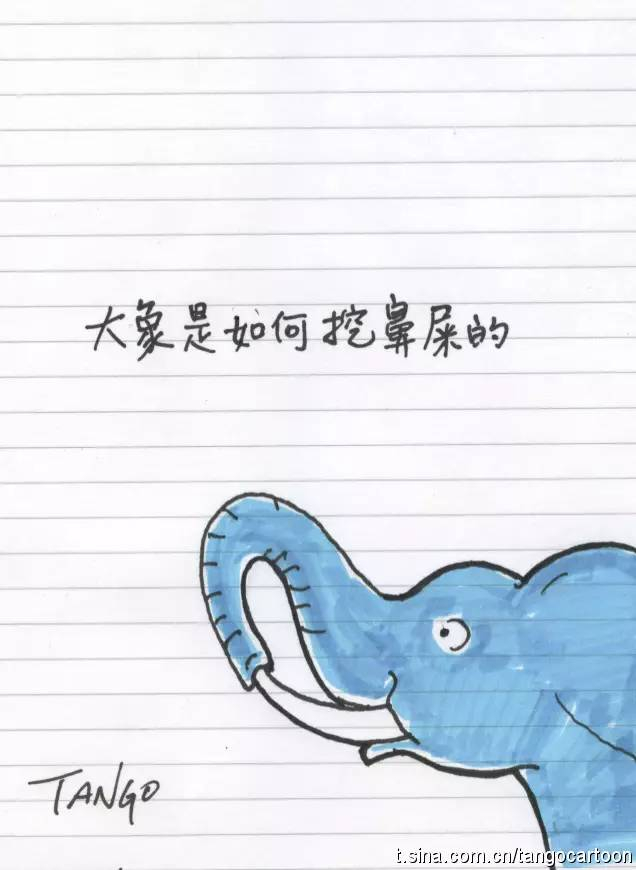 大象是如何挖鼻屎的
TANGO
t.sina.com.cn/tangocartoon